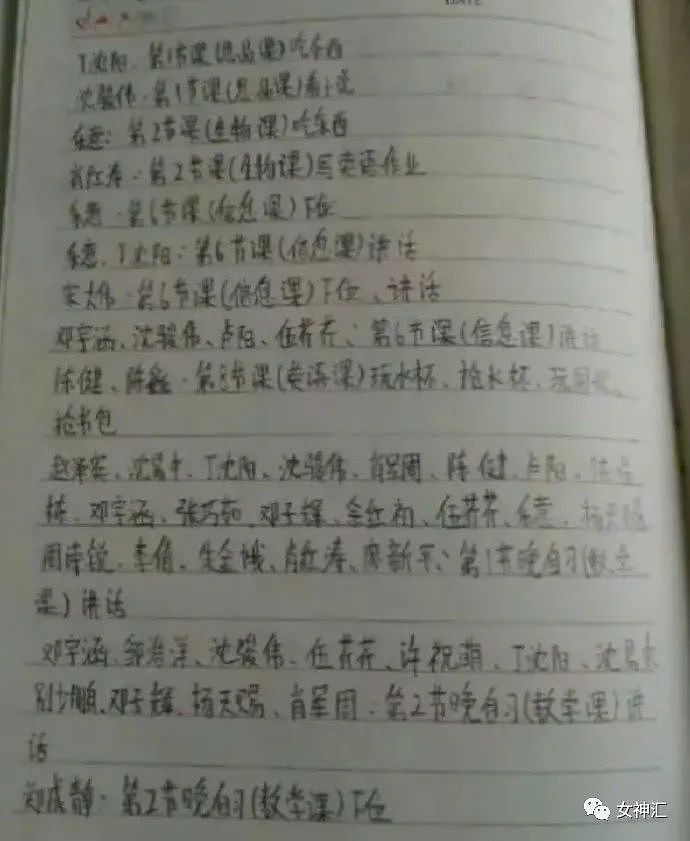 DATE
丁沈阳：第1节课(思品课)吃东西
沈骏伟：第1节课(思品课)看小说
乐意：第2节课(生物课)吃东西
肖红寿：第2节课(生物课)写英语作业
乐意：第6节课(信息课)下位
乐意、丁沈阳：第6节课(信息课)讲话
宋大伟：第6节课(信息课)下位、讲话
邓宇涵、沈骏伟、卢阳、伍芹芹：第6节课(信息课)讲话
陈健、陈鑫：第5节课(英语课)玩水杯、抢水杯、玩
抢书包
丁沈阳、沈骏伟、肖军周、陈健、卢阳、
邓宇涵、张巧茹、邓子辉、余红初、伍芹芹、乐意、杨天赐
李倩、朱金娥、肖红寿、廖新平：第1节晚自习(数学
课)讲话
邓宇涵、邹海洋、沈骏伟、伍芹芹、许祝萌、丁沈阳、
别少鹏、邓子辉、杨天赐、肖军周：第2节晚自习(数学课)讲
话
静：第2节晚自习(数学课)下位
女神汇